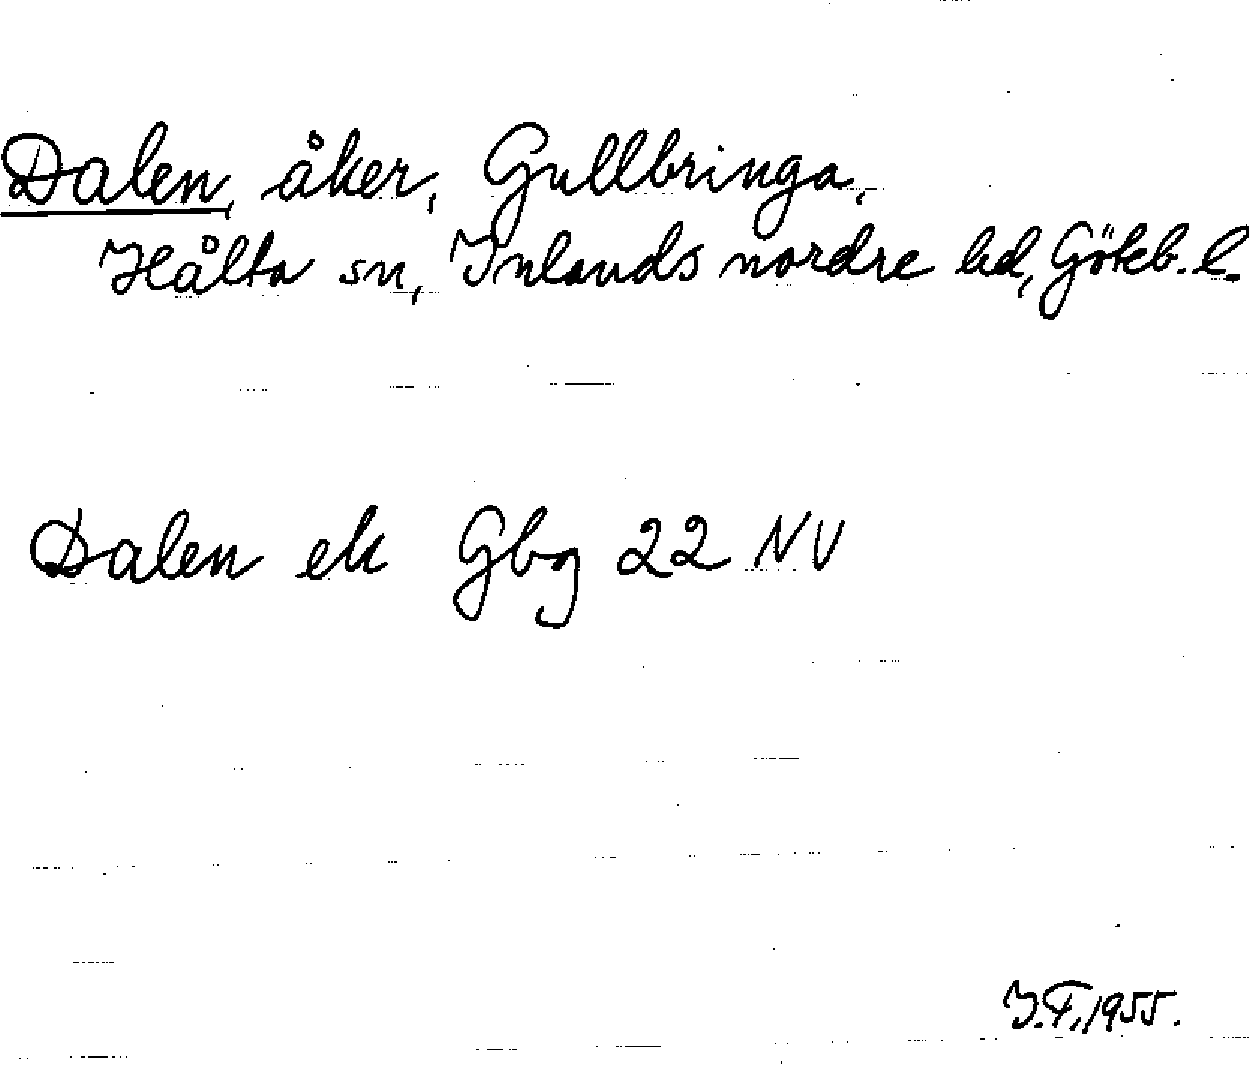 Dalen, åker, Gullbringa,
Hålta sn, Inlands nordre hd, Göteb. l.
Dalen ek Gbg 22 NV
I.F, 1955.